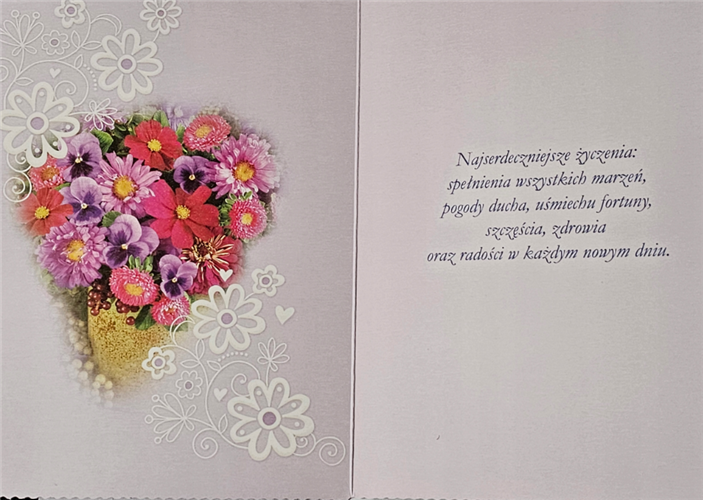 Najserdeczniejsze życzenia:
spełnienia wszystkich marzeń,
pogody ducha, uśmiechu fortuny,
szczęścia, zdrowia
oraz radości w każdym nowym dniu.